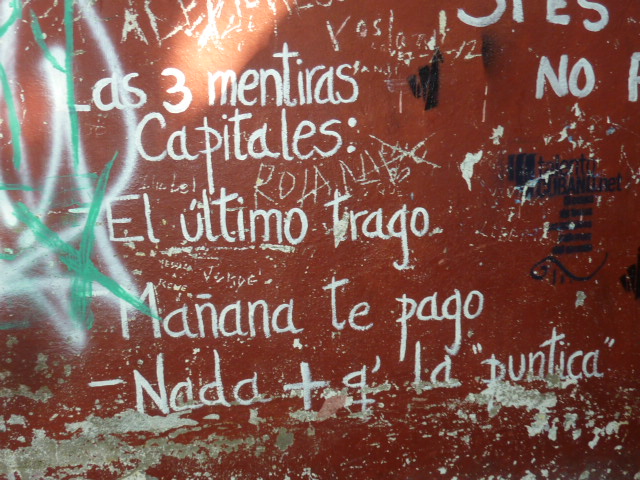 SI ES
NO
Las 3 mentiras
Capitales:
ROLANDO
- El último trago.
- Mañana te pago
- Nada + q' la "puntica"